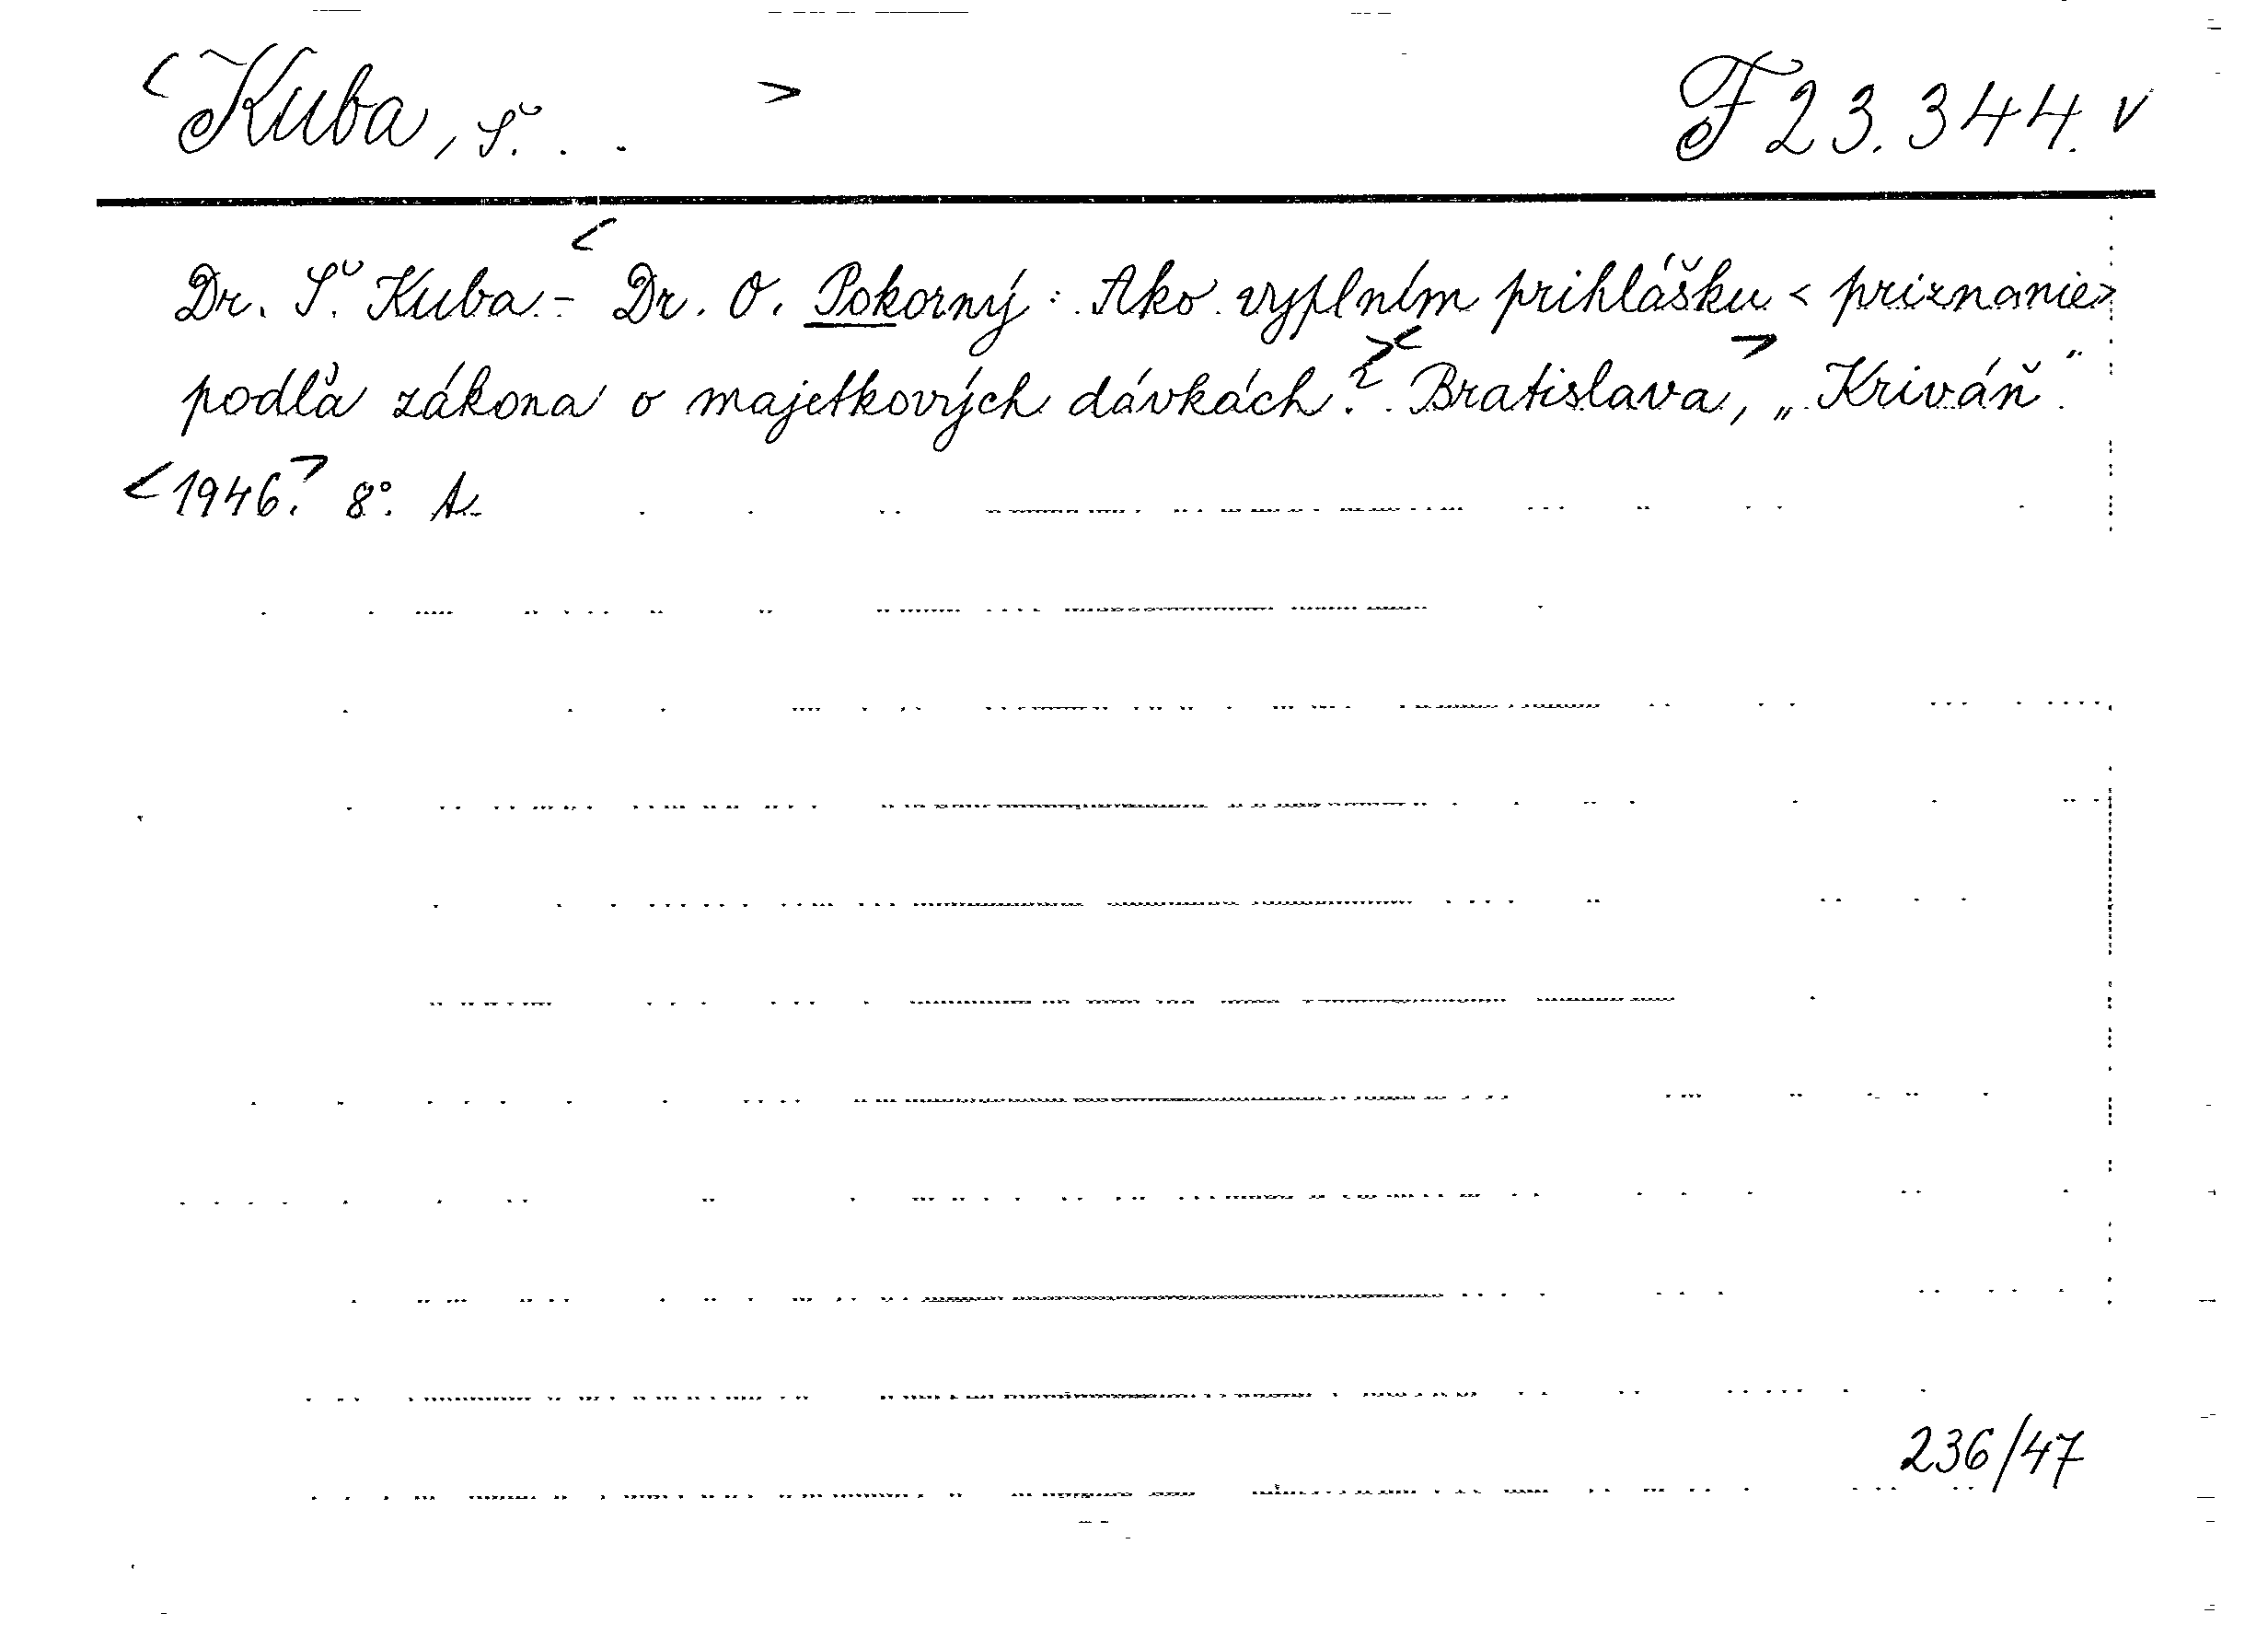 <Kuba, Š. . . > F 23.344. v
Dr. Š. Kuba - <Dr. O. Pokorný: Ako vyplním prihlášku <priznanie>
podľa zákona o majetkových dávkách?>. <Bratislava>, „Kriváň"
<1946.> 8°. A.
236/47